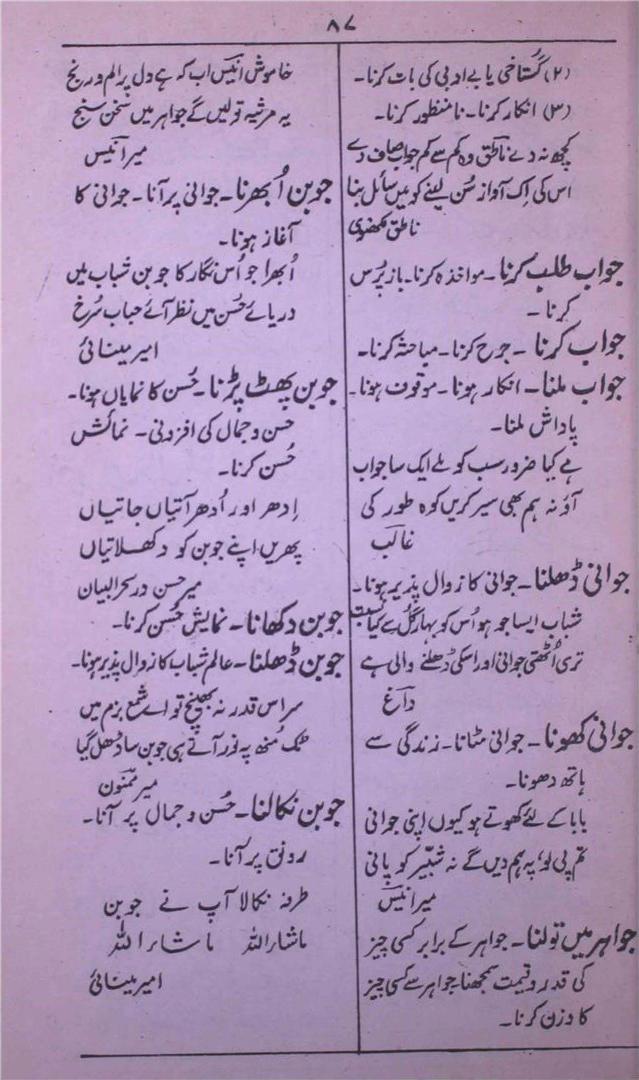 ۸۷
(۲) گستاخی یا بے ادبی کی بات کرنا۔
(۳) انکار کرنا۔ نامنظور کرنا۔
کچھ نہ دے ناطق وہ کم سے کم جواب صاف دے
اس کی اک آواز سُن لینے کو میں سائل بنا
ناطق لکھنوی
جواب طلب کرنا۔ مواخذہ کرنا۔ باز پُرس
کرنا۔
جواب کرنا ۔ جرح کرنا۔ مباحثہ کرنا۔
جواب ملنا۔ انکار ہونا۔ موقوف ہونا۔
پاداش ملنا۔
ہے کیا ضرور سب کو ملے ایک سا جواب
آؤ نہ ہم بھی سیر کریں کوہ طور کی
غالب
جوانی ڈھلنا۔ جوانی کا زوال پذیر ہونا۔
شباب ایسا جو ہو اُس کو بہار گل سے کیا نسبت
تری اُٹھتی جوانی اور اسکی ڈھلنے والی ہے
داغ
جوانی کھونا۔ جوانی مٹانا۔ زندگی سے
ہاتھ دھونا۔
بابا کے لئے کھوتے ہو کیوں اپنی جوانی
تم پی لو، پہ ہم دیں گے نہ شبیّر کو پانی
میر انیس
جواہر میں تولنا۔ جواہر کے برابر کسی چیز
کی قدر و قیمت سمجھنا۔ جواہر سے کسی چیز
کا وزن کرنا۔
خاموش انیس اب کہ ہے دل پر الم و رنج
یہ مرثیہ تولیں گے جواہر میں سخن سنج
میر انیس
جوبن اُبھرنا۔ جوانی پر آنا۔ جوانی کا
آغاز ہونا۔
اُبھرا جو اُس نگار کا جوبن شباب میں
دریائے حُسن میں نظر آئے حباب سُرخ
امیر مینائی
جوبن پھٹ پڑنا۔ حُسن کا نمایاں ہونا۔
حسن و جمال کی افزونی۔ نمائش
حُسن کرنا۔
اِدھر اور اُدھر آتیاں جاتیاں
پھریں اپنے جوبن کو دکھلاتیاں
میر حسن در سحر البیان
جوبن دکھانا۔ نمایش حُسن کرنا۔
جوبن ڈھلنا۔ عالم شباب کا زوال پذیر ہونا۔
سر اس قدر نہ بھینچ تو اے شمع بزم میں
ٹک مُنھ پہ نور آتے ہی جوبن سا ڈھل گیا
میر ممنون
جوبن نکالنا۔ حُسن و جمال پر آنا۔
رونق پر آنا۔
طرفہ نکالا آپ نے جوبن
ماشاراللہ ماشاراللہ
امیر مینائی